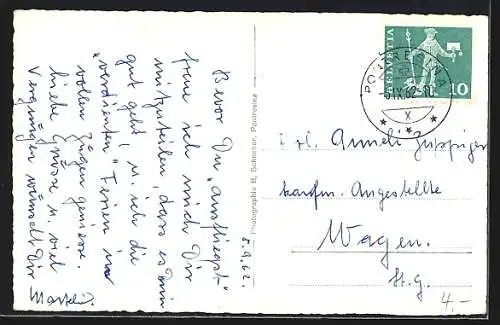 Bevor Du "ausfliegst"
freue ich mich Dir
mitzuteilen, dass es mir
gut geht, u. ich die
"verdienten" Ferien in
vollen Zügen geniesse.
Liebe Grüsse u. viel
Vergnügen wünscht Dir
5.9.62.
Photographie B. Schocher, Pontresina
HELVETIA
10
PONTRESINA
5.IX.62-10
X
Frl. Anneli
kaufm. Angestellte
Wagen.
St. G.
4.-